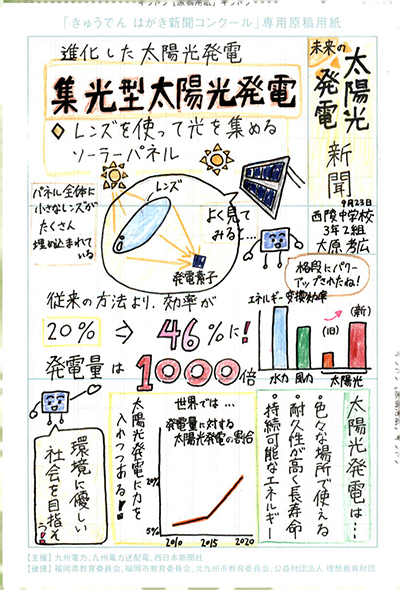 「きゅうでん はがき新聞コンクール」専用原稿用紙
未来の
太陽光
発電
新聞
9月23日
西陵中学校
3年2組
大原孝広
進化した太陽光発電
集光型太陽光発電
◇レンズを使って光を集める
ソーラーパネル
パネル全体に
小さなレンズが
たくさん
埋め込まれて
いる
レンズ
発電素子
よく見て
みると…
格段にパワー
アップされたね!
従来の方法より、効率が
20% ⇒ 46%に!
発電量は1000倍
エネルギー変換効率
(新)
(旧)
水力
風力
太陽光
太陽光発電は…
・色々な場所で使える
・耐久性が高く長寿命
・持続可能なエネルギー
世界では…
発電量に対する
太陽光発電の割合
20%
5%
2010
2015
2020
太陽光発電に力を
入れつつある!
環境に優しい
社会を目指そ
う!
【主催】九州電力、九州電力送配電、西日本新聞社
【後援】福岡県教育委員会、福岡市教育委員会、北九州市教育委員会、公益財団法人 理想教育財団